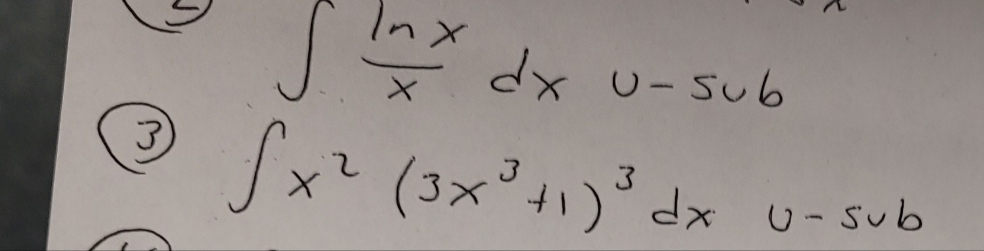 ② ∫ (ln x)/x dx u-sub
③ ∫ x² (3x³+1)³ dx u-sub